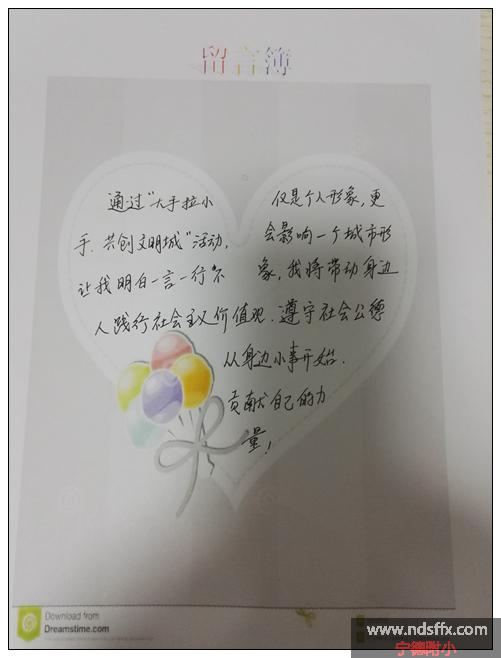 留言簿
通过"大手拉小
手、共创文明城"活动,
让我明白一言一行不
仅是个人形象,更
会影响一个城市形
象,我将带动身边
人践行社会主义价值观.遵守社会公德
从身边小事开始.
贡献自己的力
量!
Download from
Dreamstime.com
www.ndsffx.com
宁德附小